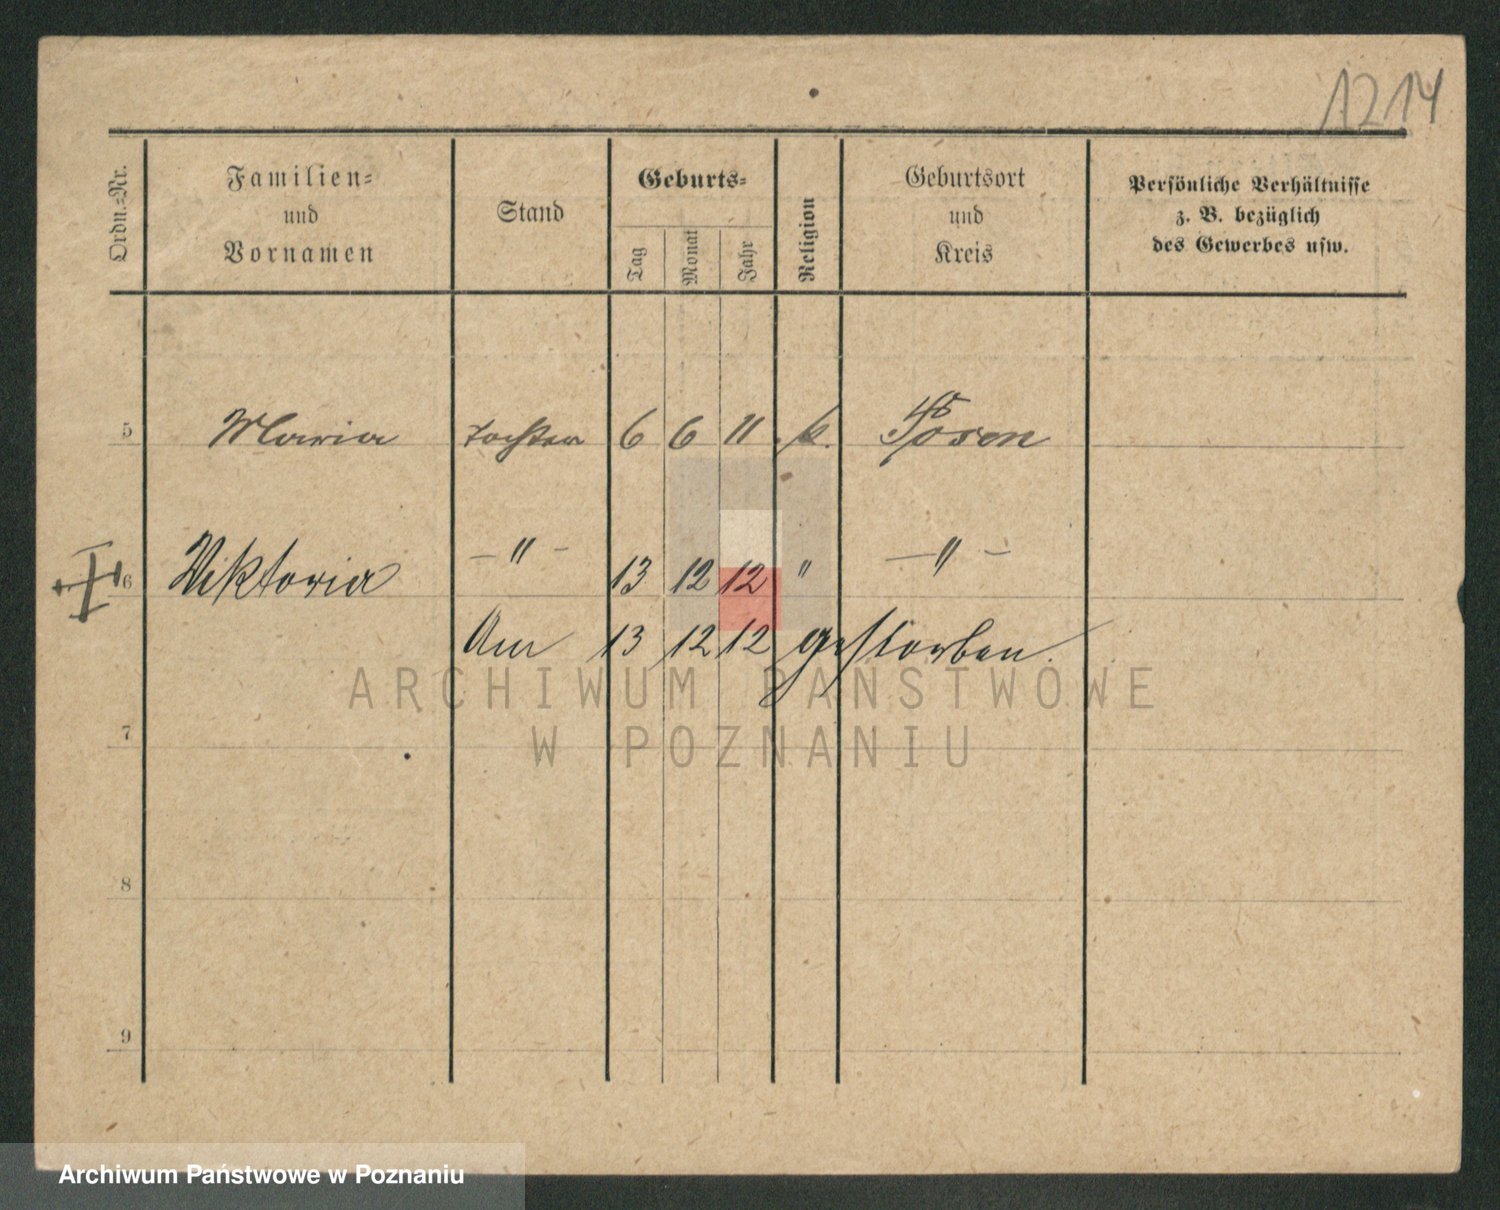 1214
Ordn.-Nr.
Familien-
und
Vornamen
Stand
Geburts-
Tag
Monat
Jahr
Religion
Geburtsort
und
Kreis
Persönliche Verhältnisse
z. B. bezüglich
des Gewerbes usw.
5 Maria Tochter 6 6 11 k. Posen
6 Viktoria — " — 13 12 12 " — " —
Am 13 12 12 gestorben.
ARCHIWUM PAŃSTWOWE
W POZNANIU
7
8
9
Archiwum Państwowe w Poznaniu